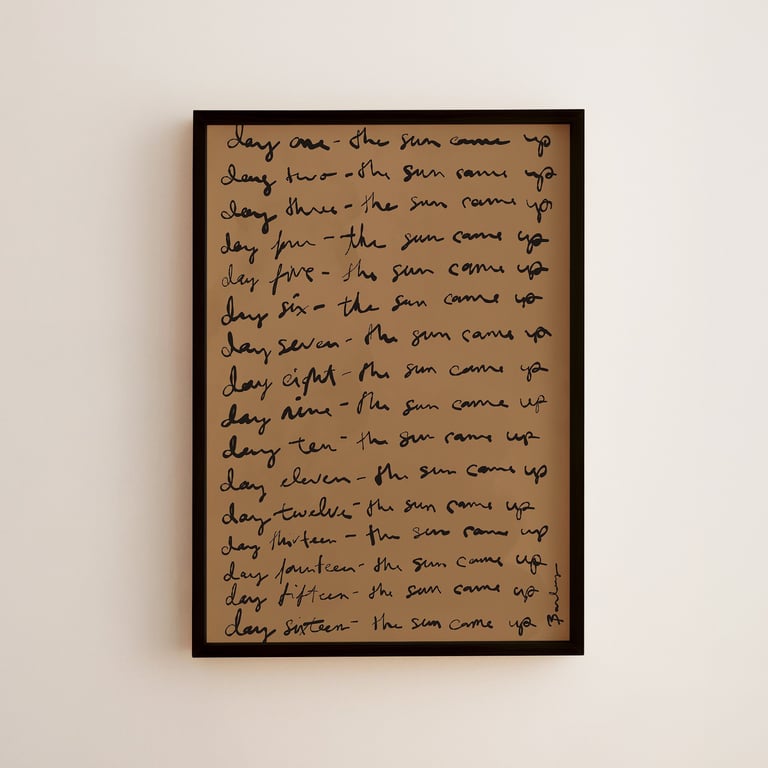 day one - the sun came up
day two - the sun came up
day three - the sun came up
day four - the sun came up
day five - the sun came up
day six - the sun came up
day seven - the sun came up
day eight - the sun came up
day nine - the sun came up
day ten - the sun came up
day eleven - the sun came up
day twelve - the sun came up
day thirteen - the sun came up
day fourteen - the sun came up
day fifteen - the sun came up
day sixteen - the sun came up